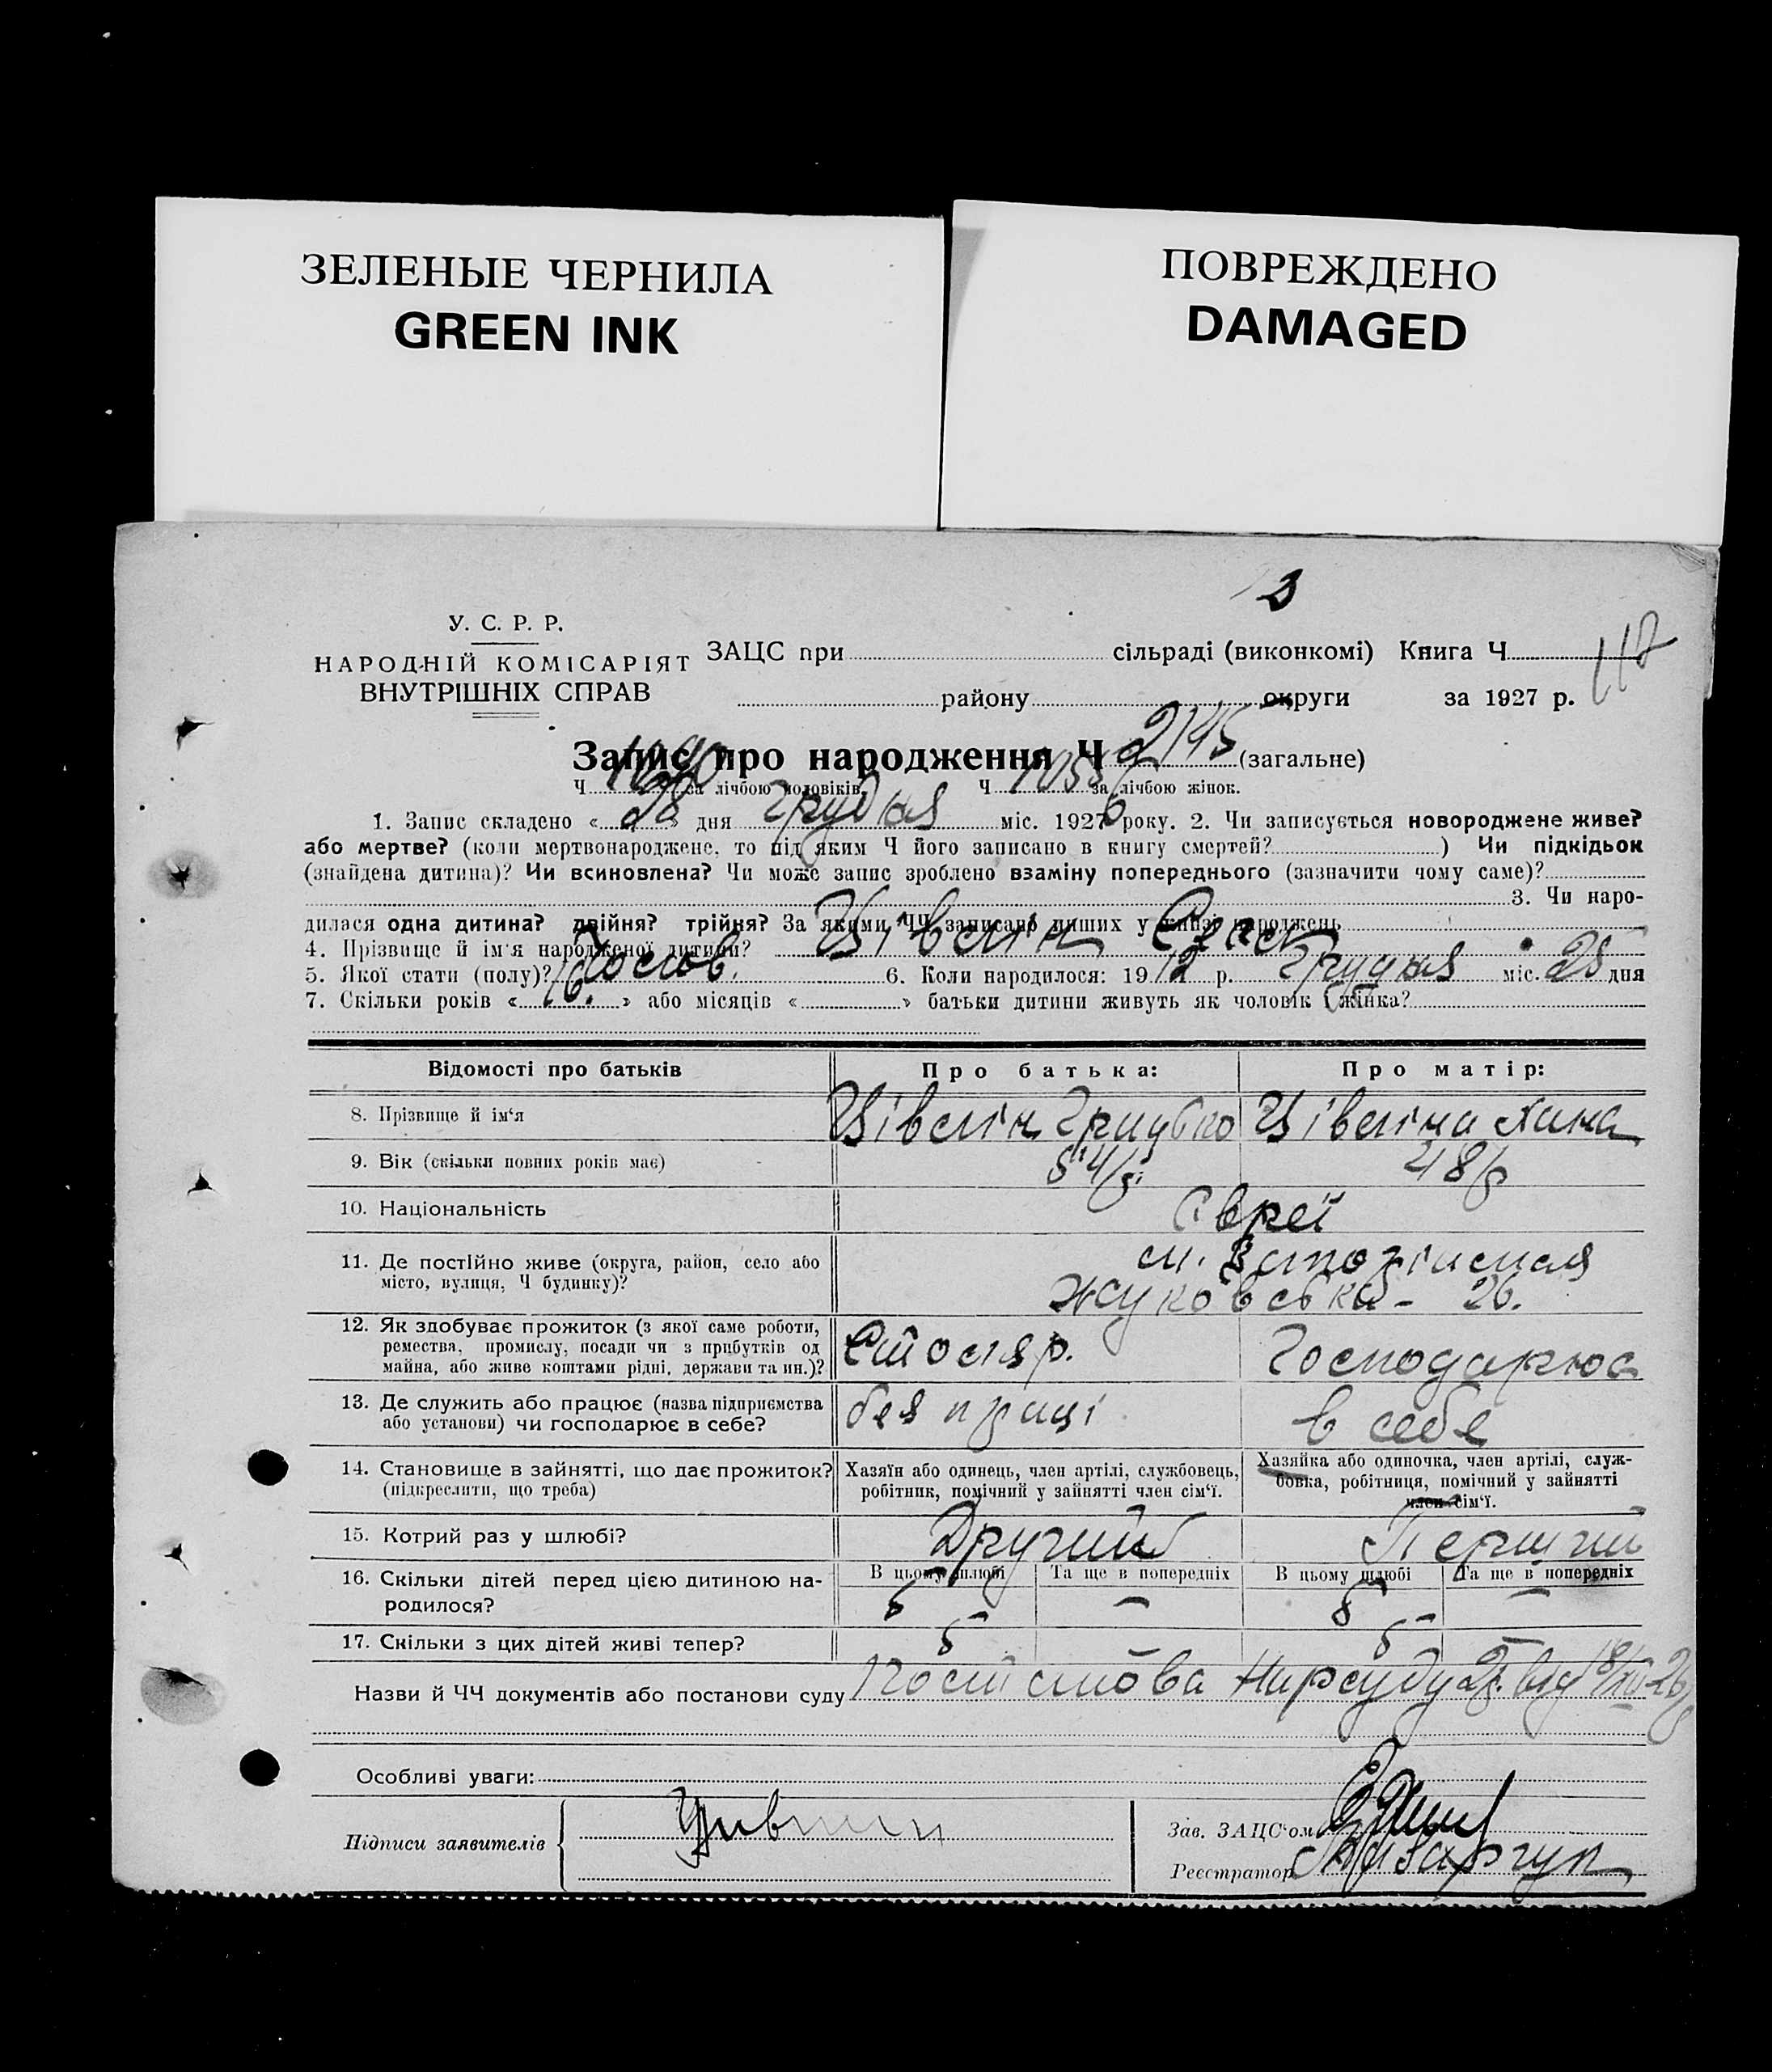 ЗЕЛЕНЫЕ ЧЕРНИЛА
GREEN INK
ПОВРЕЖДЕНО
DAMAGED
У. С. Р. Р.
НАРОДНІЙ КОМІСАРІЯТ
ВНУТРІШНІХ СПРАВ
ЗАЦС при сільраді (виконкомі) Книга Ч
району округи за 1927 р.
Запис про народження Ч 2145 (загальне)
Ч за лічбою чоловіків, Ч за лічбою жінок.
1. Запис складено « 28 » дня Грудня міс. 1926 року. 2. Чи записується новороджене живе?
або мертве? (коли мертвонароджене, то під яким Ч його записано в книгу смертей? ) Чи підкідьок
(знайдена дитина)? Чи всиновлена? Чи може запис зроблено взаміну попереднього (зазначити чому саме)?
3. Чи наро-
дилася одна дитина? двійня? трійня? За якими ЧЧ записано инших у книзі народжень
4. Прізвище й ім'я народженої дитини? Цівелін
5. Якої стати (полу)? Чолов. 6. Коли народилося: 1912 р. Грудня міс. 25 дня
7. Скільки років « » або місяців « » батьки дитини живуть як чоловік і жінка?
Відомості про батьків Про батька: Про матір:
8. Прізвище й ім'я Цівелін Цівеліна Хана
9. Вік (скільки повних років має) 54/р. 48/р
10. Національність Євреї
11. Де постійно живе (округа, район, село або
місто, вулиця, Ч будинку)? м.
Жуковська - 26.
12. Як здобуває прожиток (з якої саме роботи,
ремества, промислу, посади чи з прибутків од
майна, або живе коштами рідні, держави та ин.)? Столяр. Господарює
13. Де служить або працює (назва підприємства
або установи) чи господарює в себе? без праці в себе
14. Становище в зайнятті, що дає прожиток?
(підкреслити, що треба)
Хазяїн або одинець, член артілі, службовець,
робітник, помічний у зайнятті член сім'ї.
Хазяйка або одиночка, член артілі, служ-
бовка, робітниця, помічний у зайнятті
член сім'ї.
15. Котрий раз у шлюбі? Другий Перший
16. Скільки дітей перед цією дитиною на-
родилося?
В цьому шлюбі Та ще в попередніх В цьому шлюбі Та ще в попередніх
5 — 5 —
17. Скільки з цих дітей живі тепер? 5 5 —
Назви й ЧЧ документів або постанови суду Постанова Нарсуду від
Особливі уваги:
Підписи заявителів
Зав. ЗАЦС'ом
Реєстратор